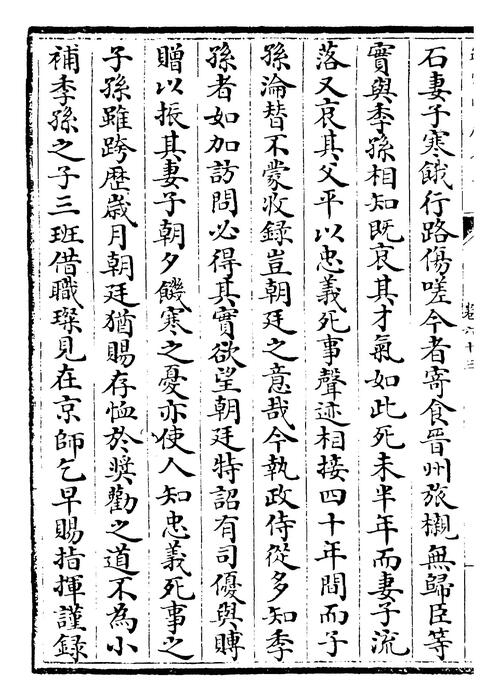 石妻子寒餓行路傷嗟今者寄食晉州旅櫬無歸臣等
實與季孫相知既哀其才氣如此死未半年而妻子流
落又哀其父平以忠義死事聲迹相接四十年間而子
孫淪替不蒙收録豈朝廷之意哉今執政侍從多知季
孫者如加訪問必得其實欲望朝廷特詔有司優與賻
贈以振其妻子朝夕饑寒之憂亦使人知忠義死事之
子孫雖跨歴歳月朝廷猶賜存恤於奬勸之道不為小
補季孫之子三班借職璨見在京師乞早賜指揮謹録